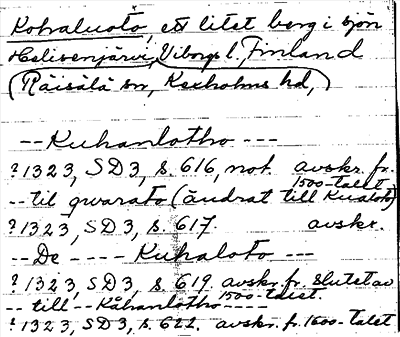 Kohaluoto, ett litet berg i sjön
Helisenjärvi, Viborgs l. Finland
(Räisälä sn, Kexholms hd,)
-- Kuhanlotho ---
?1323, SD3, s. 616, not. avskr. fr. 1500-talet
-- til qwarato (ändrat till Kualoto)
?1323, SD3, s. 617. avskr.
-- De ---- Kuhaloto ---
?1323, SD3, s. 619. avskr. fr. slutet av 1500-talet.
-- till -- Kåhanlotho ----
?1323, SD3, s. 622. avskr. fr. 1600-talet